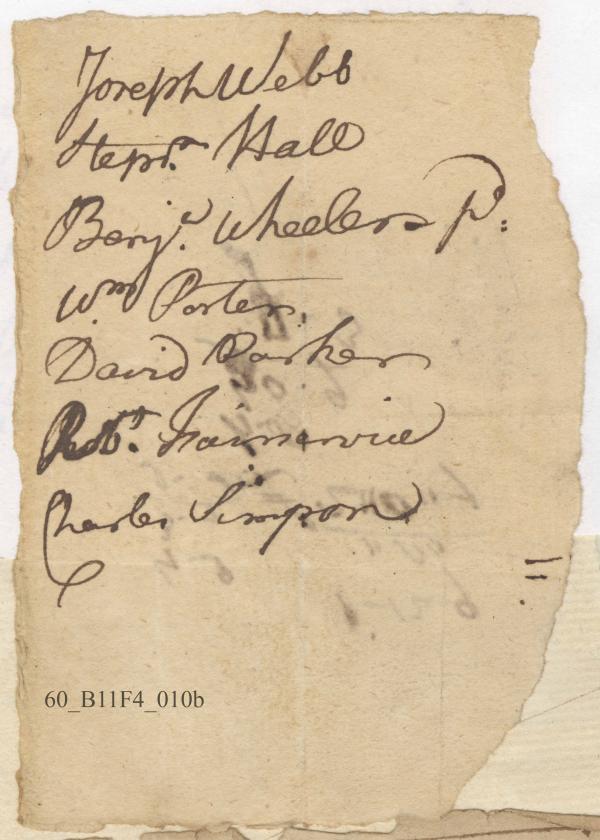 Joseph Webb
Stepn. Hall
Benja. Wheeler
Wm Porter
David Parker
Robt.
Charles Simpson
60_B11F4_010b